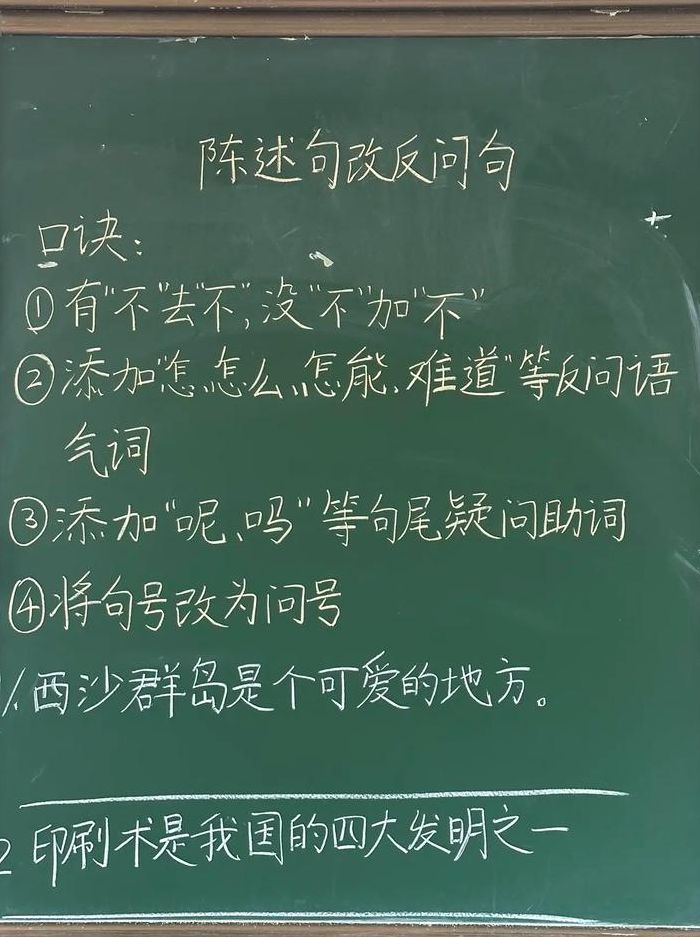 陈述句改反问句
口诀:
①有"不"去"不",没"不"加"不"
②添加"怎、怎么、怎能、难道"等反问语
气词
③添加"呢、吗"等句尾疑问助词
④将句号改为问号
1.西沙群岛是个可爱的地方。
2 印刷术是我国的四大发明之一